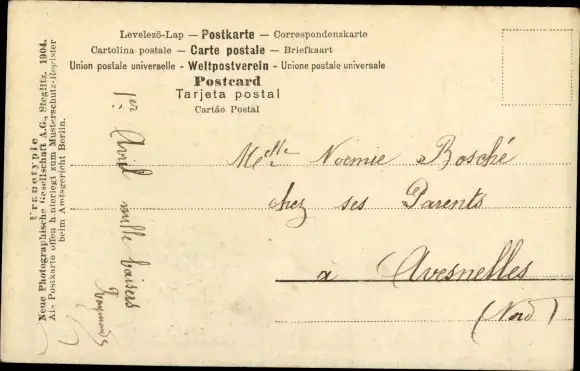 Levelezö-Lap — Postkarte — Correspondenzkarte
Cartolina postale — Carte postale — Briefkaart
Union postale universelle - Weltpostverein - Unione postale universale
Postcard
Tarjeta postal
Cartão Postal
Uranotypie
Neue Photographische Gesellschaft A.G., Steglitz. 1904.
Als Postkarte offen hinterlegt zum Musterschutz-Register
beim Amtsgericht Berlin.
1er Avril mille baisers
Raymond
Melle Noémie Bosché
chez ses Parents
à Avesnelles
(Nord)